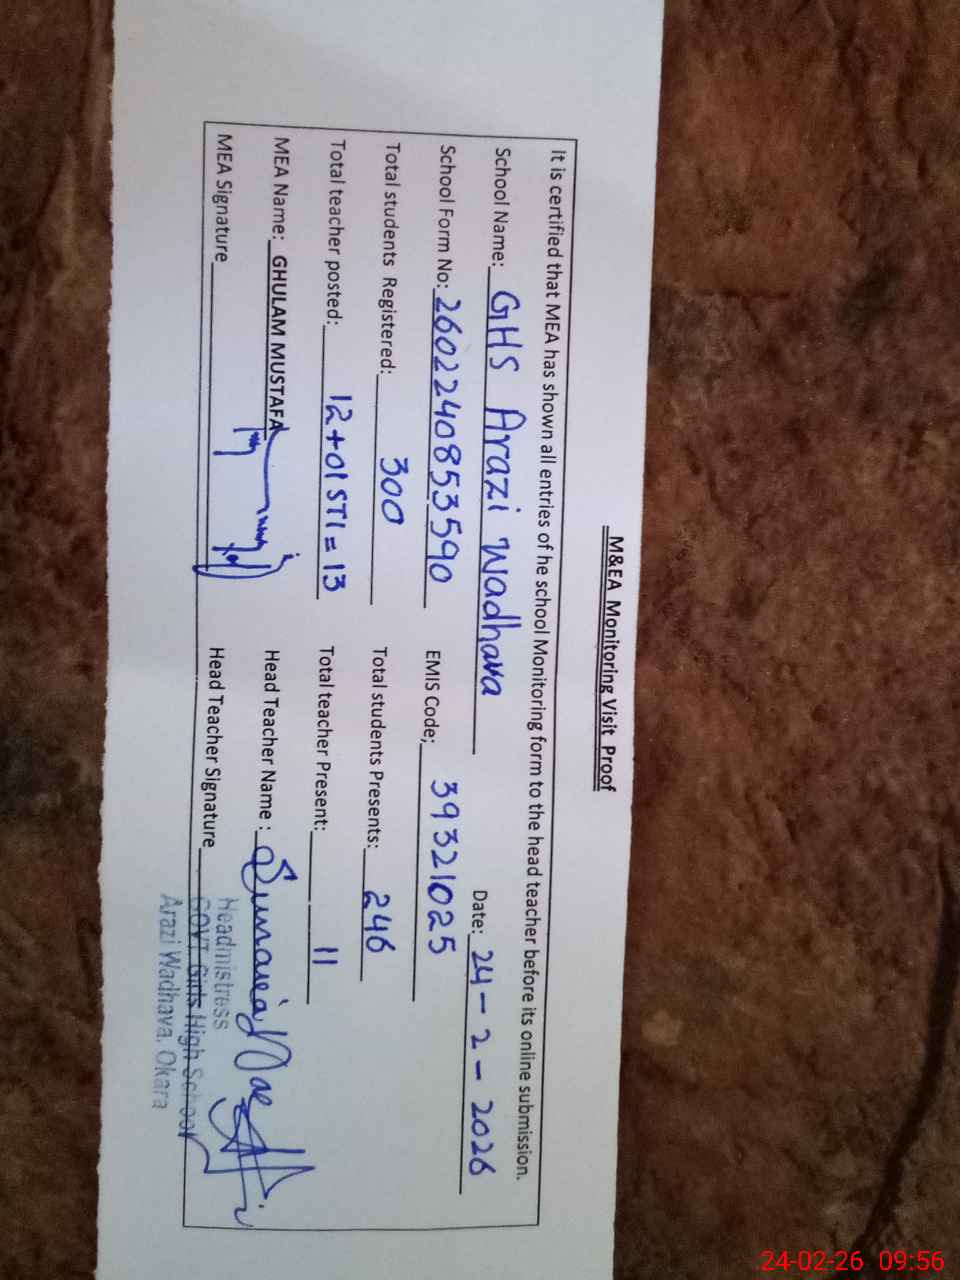 M&EA Monitoring Visit Proof
It is certified that MEA has shown all entries of he school Monitoring form to the head teacher before its online submission.
School Name: GHS Arazi Wadhava Date: 24-2-2026
School Form No: 26022408535​90 EMIS Code; 39321025
Total students Registered: 300 Total students Presents: 246
Total teacher posted: 12+01 STI = 13 Total teacher Present: 11
MEA Name: GHULAM MUSTAFA Head Teacher Name : Sumaria
MEA Signature Head Teacher Signature
Headmistress
GOVT. Girls High School
Arazi Wadhava, Okara
24-02-26 09:56